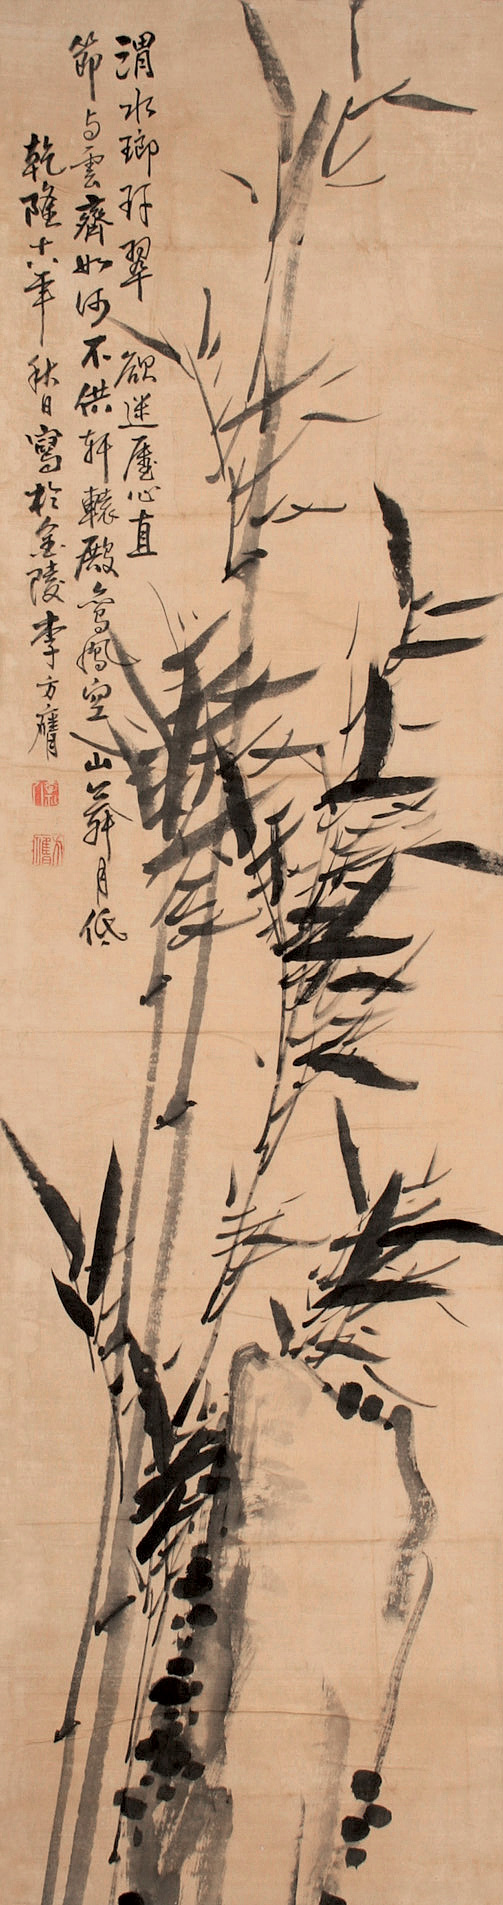 渭水瑯玕翠欲迷虛心直
節与雲齊如何不供軒轅殿鸞鳳空山舞月低
乾隆十六年秋日寫於金陵李方膺